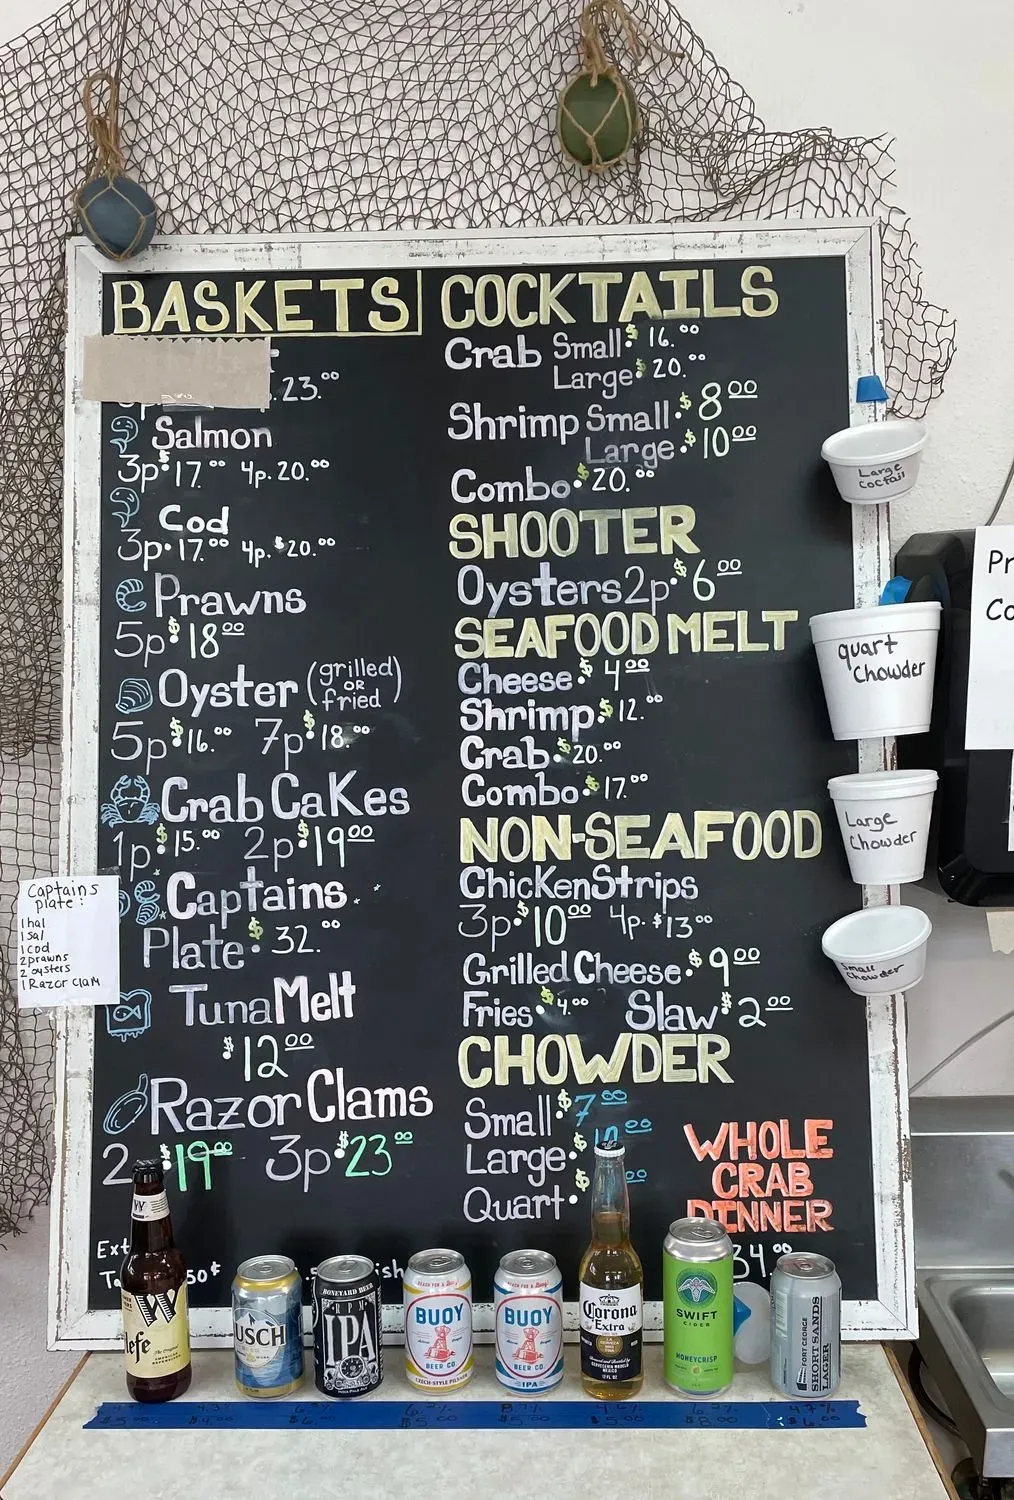 BASKETS
23.00
Salmon
3p $17.00 4p. 20.00
Cod
3p. 17.00 4p. $20.00
Prawns
5p $18.00
Oyster (grilled OR fried)
5p $16.00 7p $18.00
Crab Cakes
1p $15.00 2p $19.00
Captains
Plate $32.00
Tuna Melt
$12.00
Razor Clams
2 $19.00 3p $23.00
Ext
Ta 50¢ ish
COCKTAILS
Crab Small $16.00
Large $20.00
Shrimp Small $8.00
Large $10.00
Combo $20.00
SHOOTER
Oysters 2p $6.00
SEAFOOD MELT
Cheese $4.00
Shrimp $12.00
Crab $20.00
Combo $17.00
NON-SEAFOOD
Chicken Strips
3p $10.00 4p. $13.00
Grilled Cheese $9.00
Fries $4.00 Slaw $2.00
CHOWDER
Small $7.00
Large 10.00
Quart
WHOLE
CRAB
DINNER
34.00
Captains
plate:
1 hal
1 sal
1 cod
2 prawns
2 oysters
1 Razor Clam
Large
Coctail
quart
Chowder
Large
Chowder
Small
Chowder
Pr
Co
W
W
efe
The Original
USCH
BONEYARD BEER
RPM
IPA
INDIA PALE ALE
REACH FOR A Buoy
BUOY
BEER CO.
CZECH-STYLE PILSNER
REACH FOR A Buoy
BUOY
BEER CO.
IPA
Corona
Extra
SWIFT
CIDER
HONEYCRISP
FORT GEORGE
SHORT SANDS
LAGER
$5.00
$8.00
4.7%